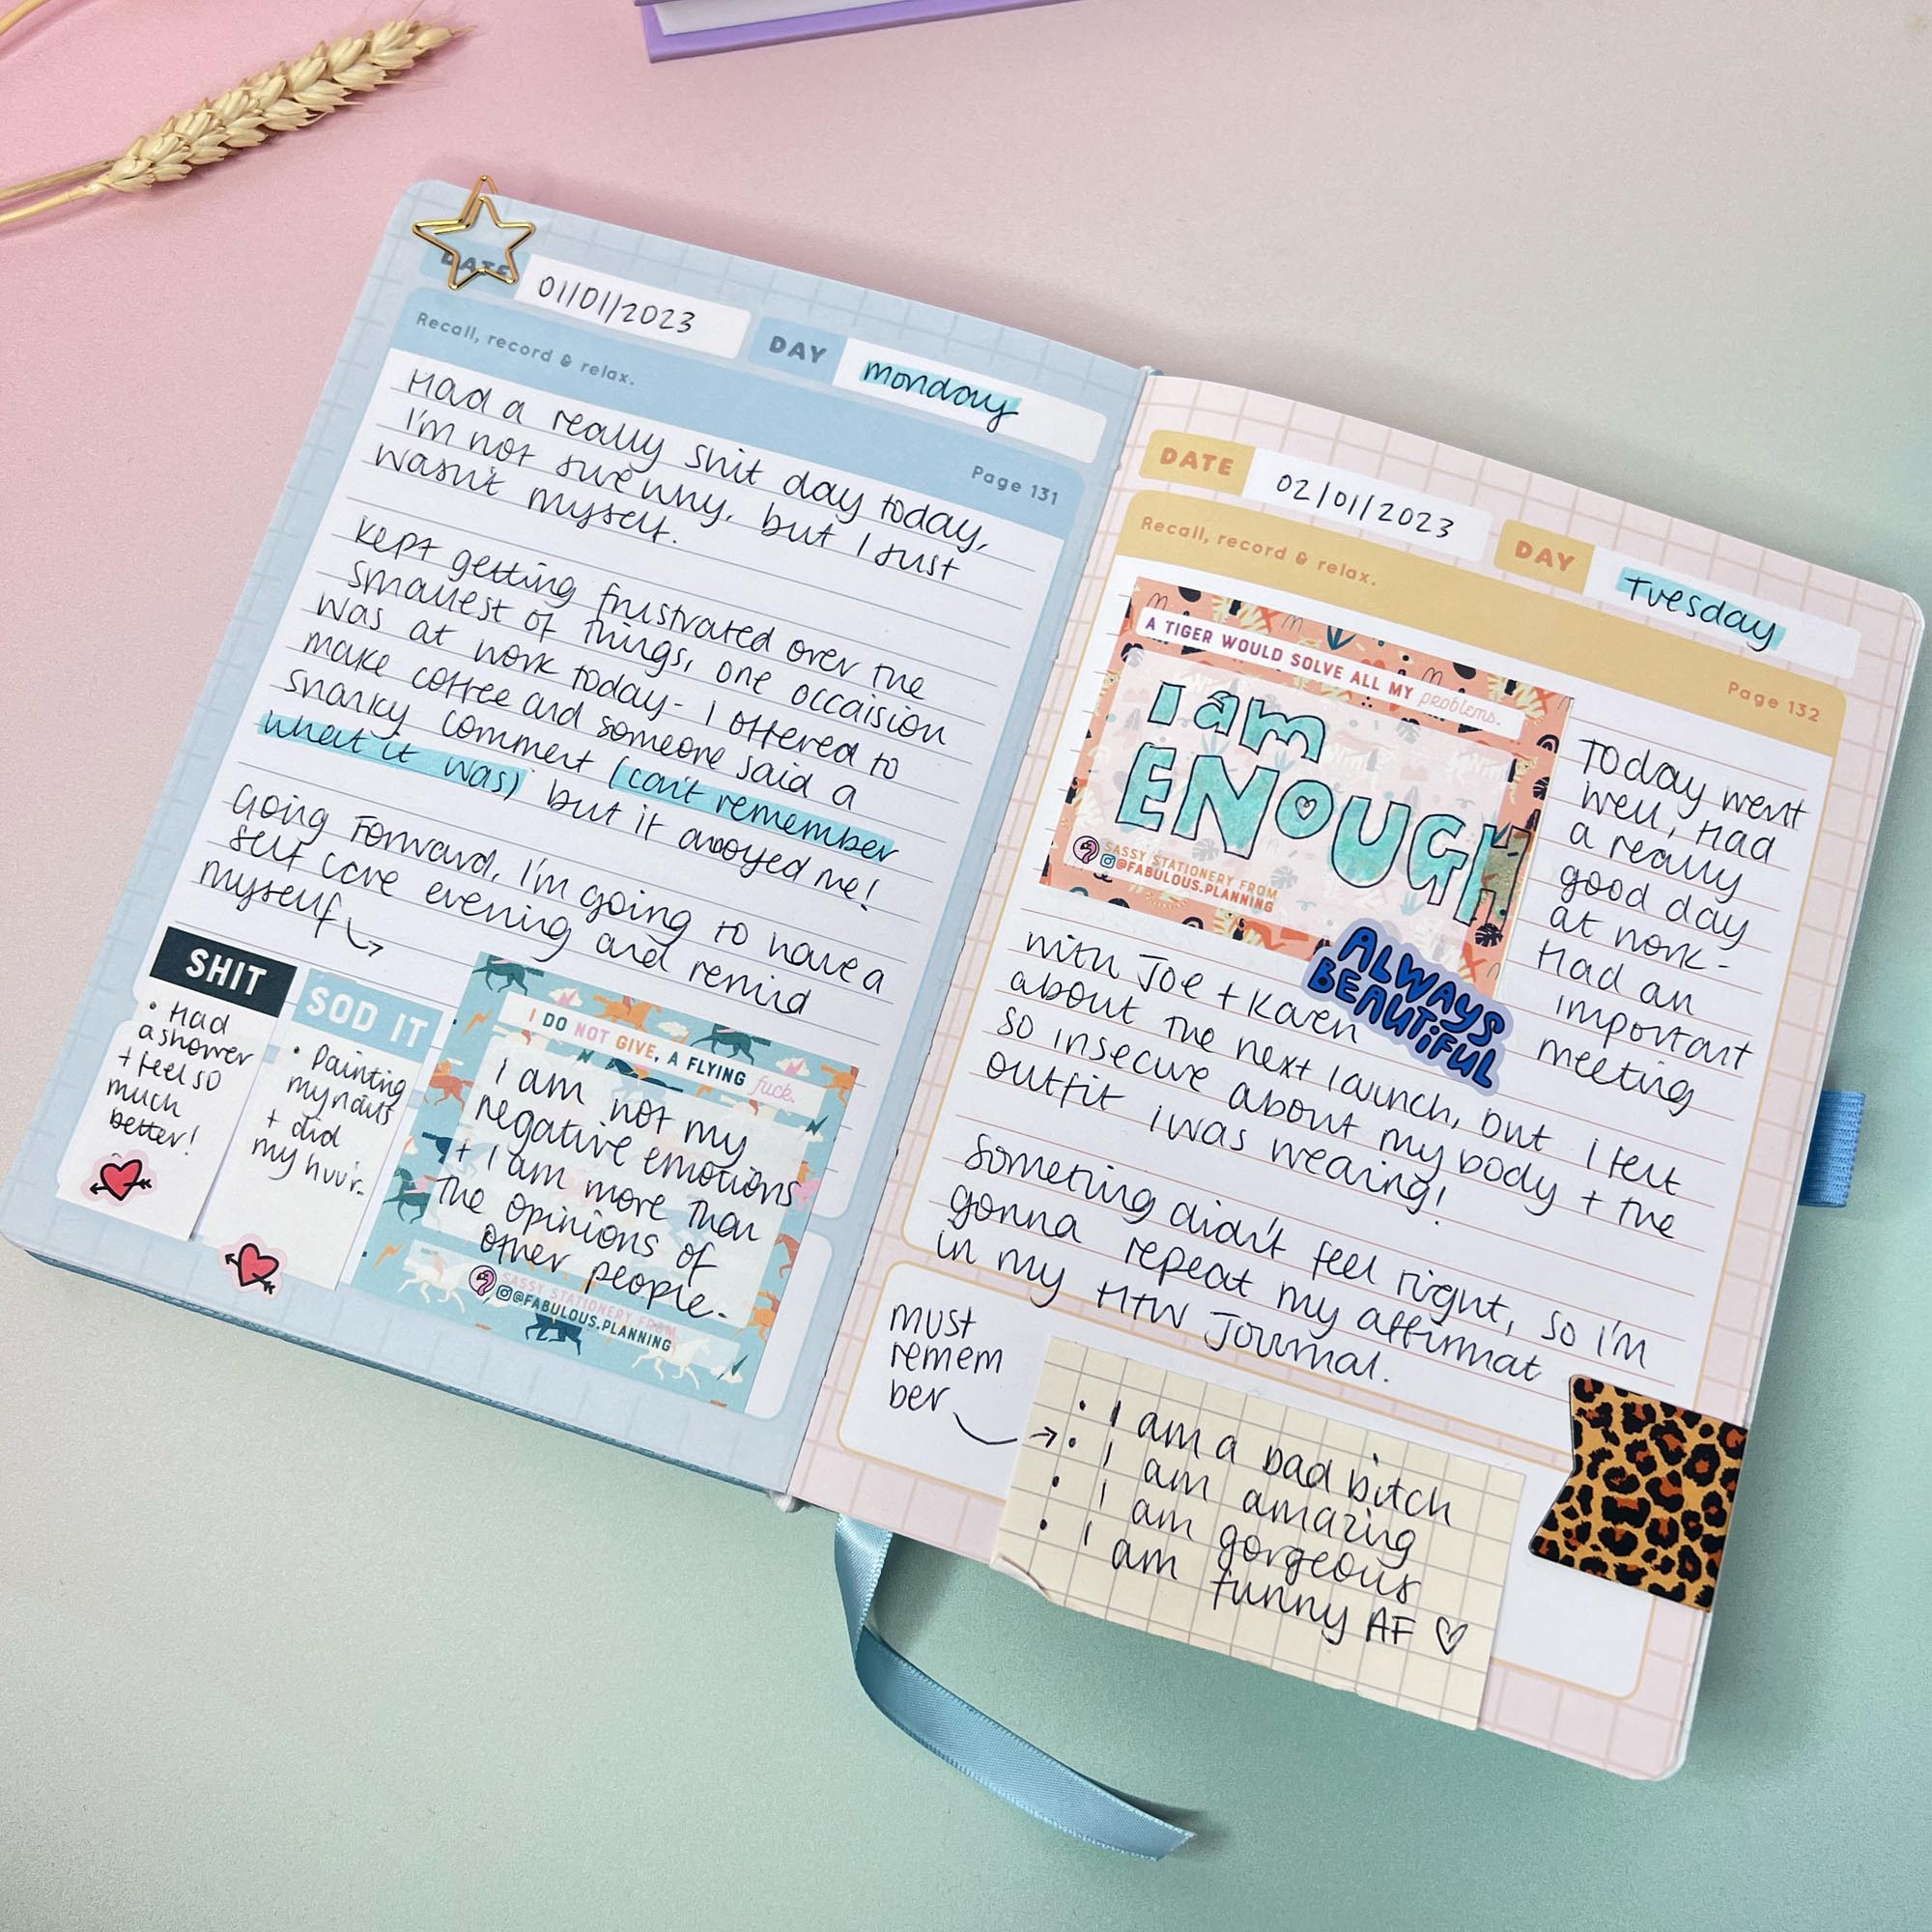 DATE
01/01/2023
DAY
monday
Recall, record & relax.
Page 131
Had a really shit day today,
I'm not sure why, but I just
wasn't myself.
kept getting frustrated over the
smallest of things, one occaision
was at work today - I offered to
make coffee and someone said a
snarky comment (can't remember
what it was) but it annoyed me!
Going Forward, I'm going to have a
self care evening and remind
myself
SHIT
• Had
a shower
+ feel so
much
better!
SOD IT
• Painting
my nails
+ did
my hair.
I DO NOT GIVE, A FLYING fuck.
I am not my
negative emotions
+ I am more than
the opinions of
other people.
SASSY STATIONERY FROM
@FABULOUS.PLANNING
DATE
02/01/2023
DAY
Tuesday
Recall, record & relax.
Page 132
A TIGER WOULD SOLVE ALL MY problems.
I am
ENOUGH
SASSY STATIONERY FROM
@FABULOUS.PLANNING
ALWAYS
BEAUTiFUL
Today went
well, Had
a really
good day
at work -
Had an
important
meeting
with Joe + Karen
about the next launch, but I felt
so insecure about my body + the
outfit i was wearing!
Someting didn't feel right, so I'm
gonna repeat my affirmat
in my HTW Journal.
must
remem
ber
• I am a bad bitch
• I am amazing
• I am gorgeous
• I am funny AF ♡